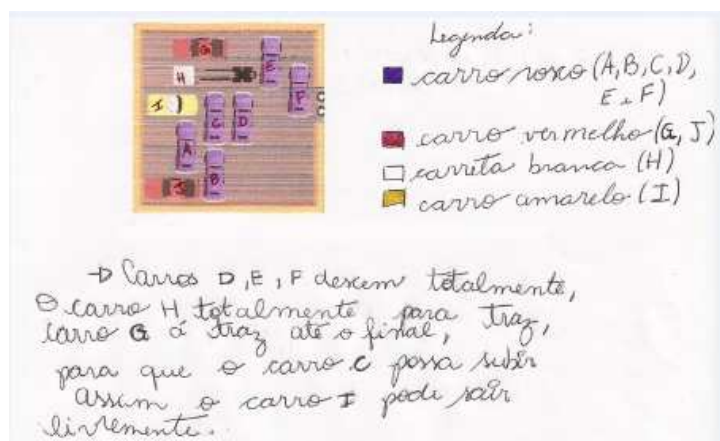 Legenda:
carro roxo (A, B, C, D,
E e F)
carro vermelho (G, J)
carreta branca (H)
carro amarelo (I)
G
E
H
F
I
C
D
A
J
B
→ Carros D, E, F descem totalmente,
O carro H totalmente para traz,
carro G á traz até o final,
para que o carro C possa subir
assim o carro I pode sair
livremente.